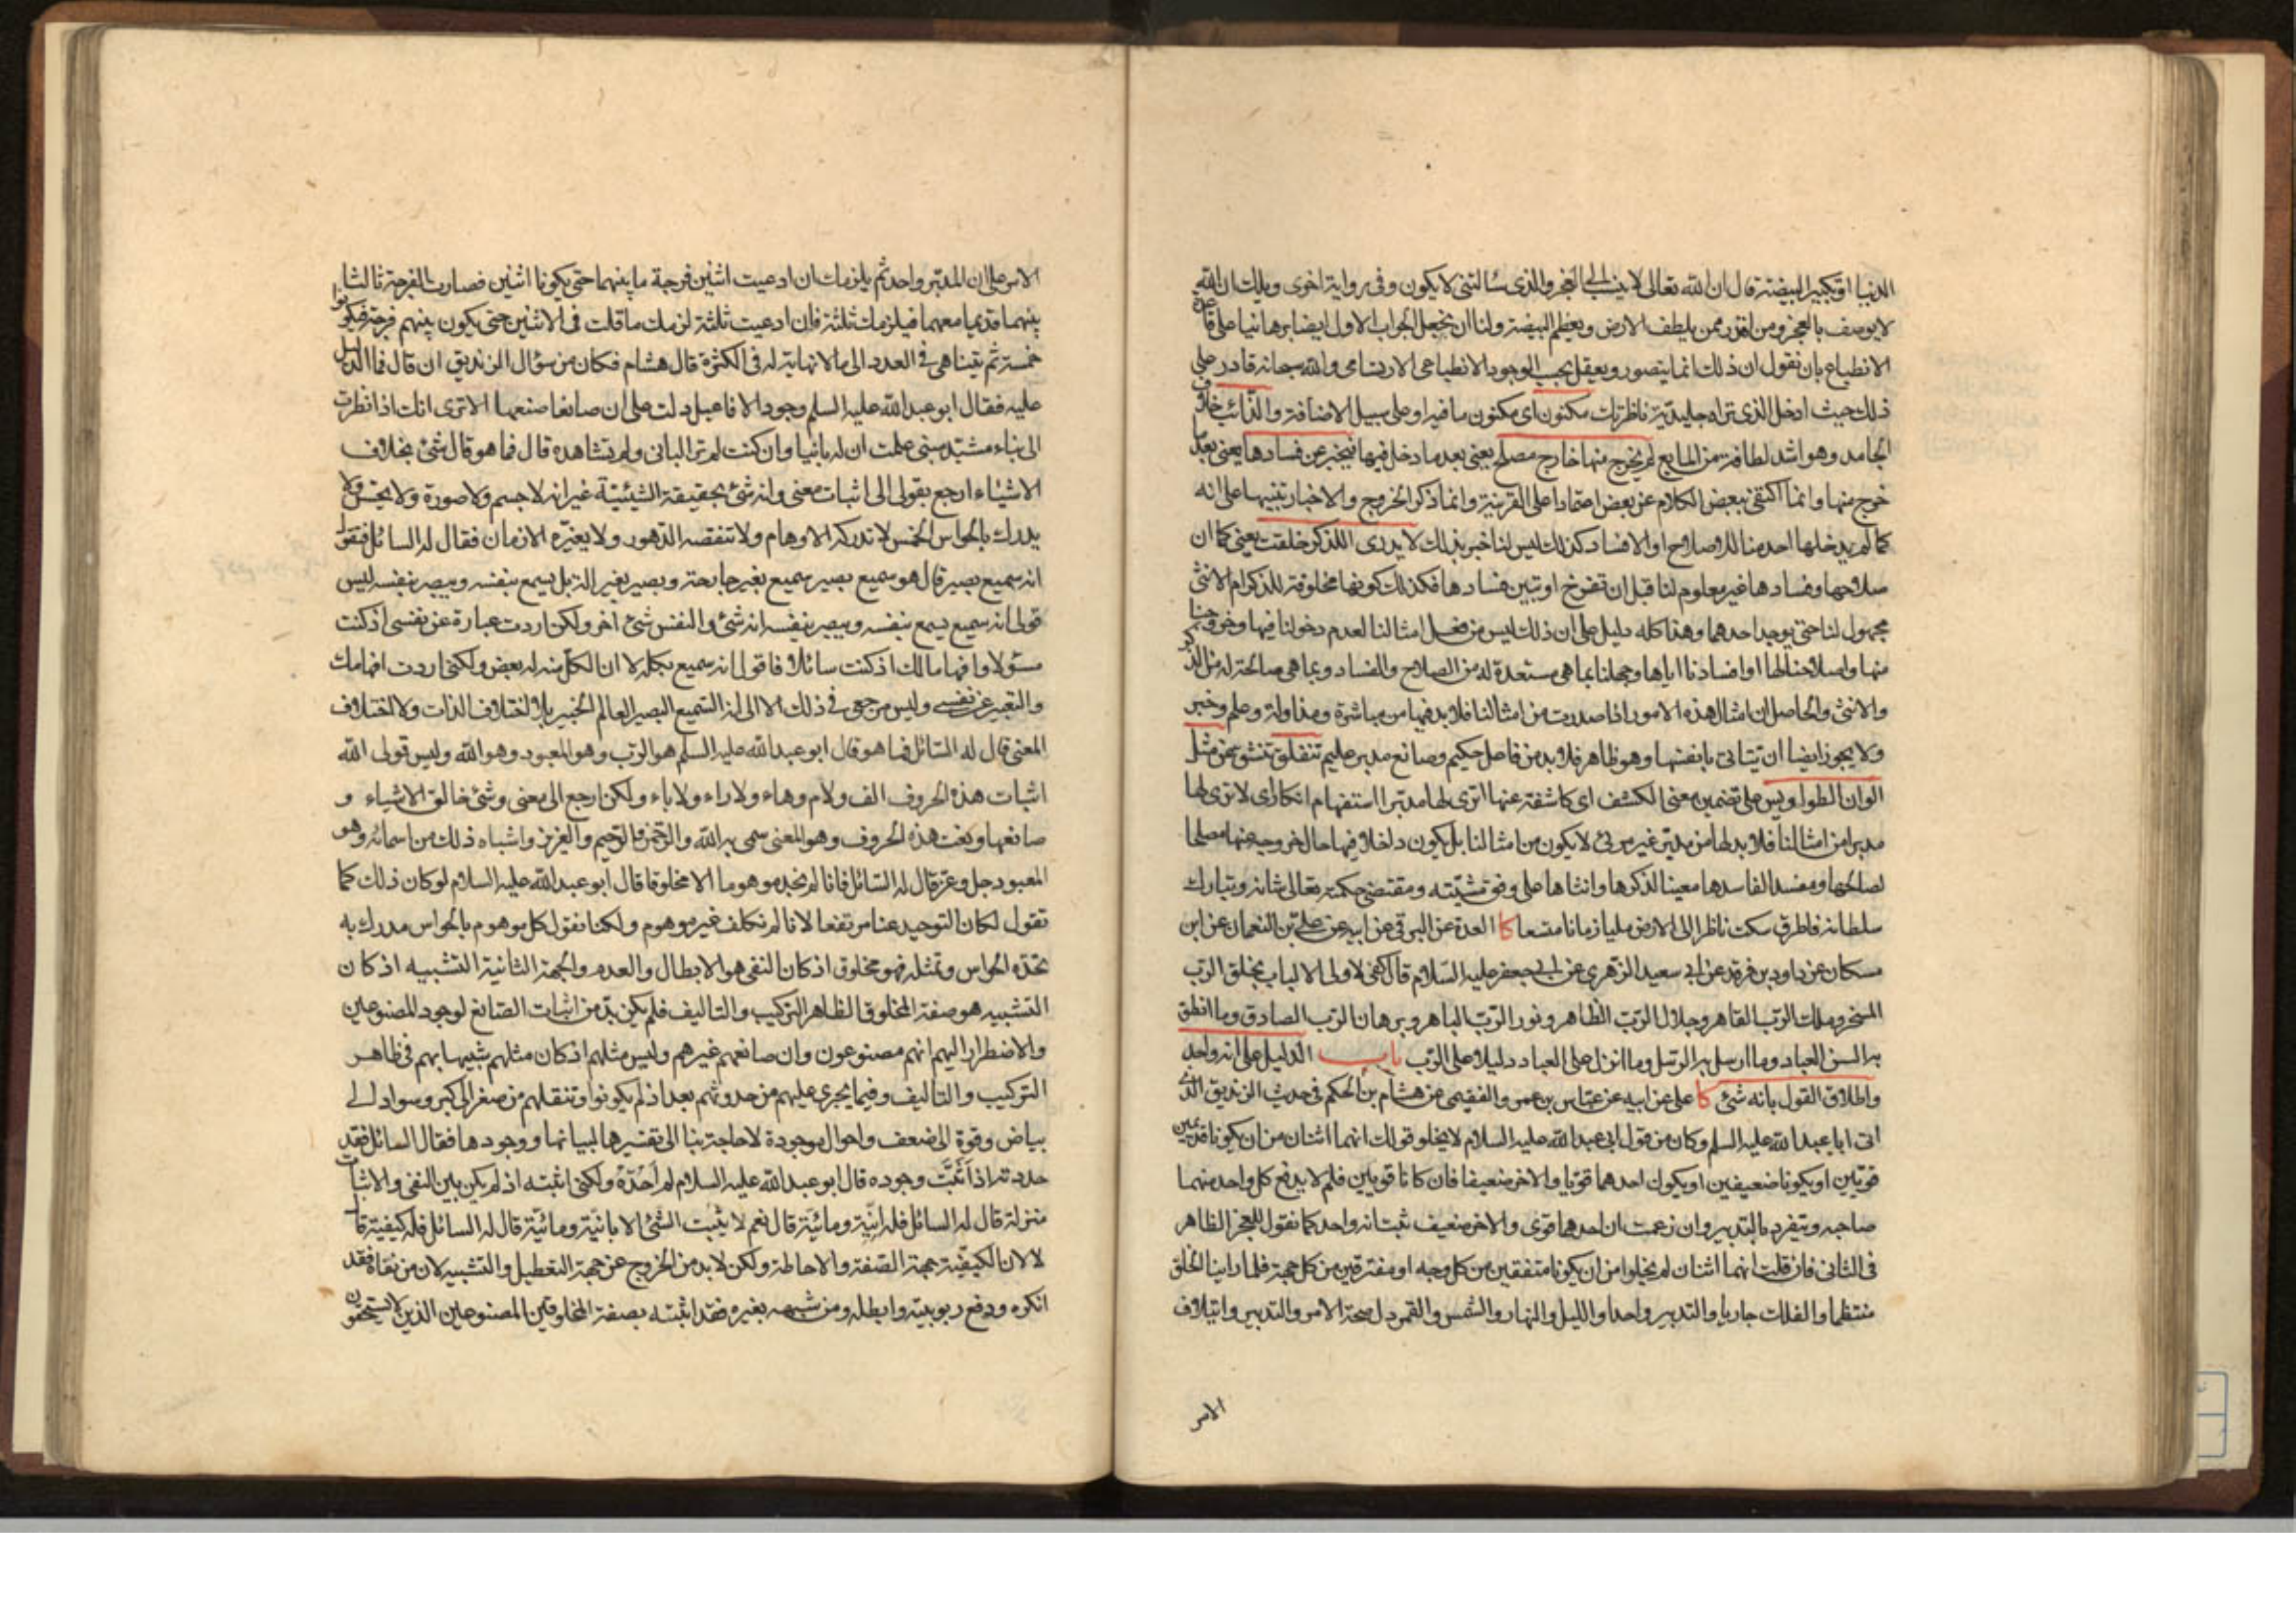 الدنيا او تكبير البيضة قال ان الله تعالى لا ينسب الى العجز والذي سألتني لا يكون وفي رواية اخرى ويلك ان الله
لا يوصف بالعجز ومن اقدر ممن يلطف الارض ويعظم البيضة ولنا ان نجعل الجواب الاول ايضا برهانيا على قاعدة
الانطباع بان نقول ان ذلك انما يتصور ويعقل بحسب الوجود الانطباعي الارتسامي والله سبحانه قادر على
ذلك حيث ادخل الذي تراه جليدية ناظرتك مكنون اي مكنون ما فيها وعلى سبيل الاضافة والذائب خلاف
الجامد وهو اشد لطافة من المايع لم يخرج منها خارج مصلح يعني بعد ما دخل فيها فيخبر عن فسادها يعني بعد ما
خرج منها وانما اكتفى ببعض الكلام عن بعض اعتمادا على القرينة وانما ذكر الخروج والاخبار تنبيها على انه
كما لم يدخلها احد منا للاصلاح او الافساد كذلك ليس لنا خبر بذلك لا يدرى اللذكر خلقت يعني كما ان
صلاحها وفسادها غير معلوم لنا قبل ان تفرخ او تبين فسادها فكذلك كونها مخلوقة للذكر ام الانثى
مجهول لنا حتى يوجد احدهما وهذا كله دليل على ان ذلك ليس من فعل امثالنا لعدم دخولنا فيها وخروجنا
منها واصلاحنا لها او افسادنا اياها وجهلنا بما هي مستعدة له من الصلاح والفساد وبما هي صالحة له من الذكر
والانثى والحاصل ان امثال هذه الامور اذا صدرت من امثالنا فلا بد فيها من مباشرة ومزاولة وعلم وخبر
ولا يجوز ايضا ان تتاتى بانفسها وهو ظاهر فلا بد من فاعل حكيم وصانع مدبر عليم تنفلق تنشق عن مثل
الوان الطواويس على تضمين معنى الكشف اي كاشفة عنها اترى لها مدبرا استفهام انكار اي لا ترى لها
مدبرا من امثالنا فلا بد لها من مدبر غير مرئي لا يكون من امثالنا بل يكون داخلا فيها حال خروجه منها مصلحا
لصالحها ومفسدا لفاسدها معينا لذكرها وانثاها على وفق مشيته ومقتضى حكمته تعالى شانه وتبارك
سلطانه فاطرق سكت ناظرا الى الارض مليا زمانا متسعا كا العدة عن البرقي عن ابيه عن علي بن النعمان عن ابن
مسكان عن داود بن فرقد عن ابي سعيد الزهري عن ابي جعفر عليه السلام قال كفى لاولى الالباب بخلق الرب
المسخر وملك الرب القاهر وجلال الرب الظاهر ونور الرب الباهر وبرهان الرب الصادق وما انطق
به السن العباد وما ارسل به الرسل وما انزل على العباد دليلا على الرب باب الدليل على انه واحد
واطلاق القول بانه شئ كا علي عن ابيه عن عباس بن عمرو الفقيمي عن هشام بن الحكم في حديث الزنديق الذي
اتى ابا عبد الله عليه السلم وكان من قول ابي عبد الله عليه السلام لا يخلو قولك انهما اثنان من ان يكونا قديمين
قويين او يكونا ضعيفين او يكون احدهما قويا والاخر ضعيفا فان كانا قويين فلم لا يدفع كل واحد منهما
صاحبه ويتفرد بالتدبير وان زعمت ان احدهما قوي والاخر ضعيف ثبت انه واحد كما نقول للعجز الظاهر
في الثاني فان قلت انهما اثنان لم يخلوا من ان يكونا متفقين من كل وجه او مفترقين من كل جهة فلما راينا الخلق
منتظما والفلك جاريا والتدبير واحدا والليل والنهار والشمس والقمر دل صحة الامر والتدبير وايتلاف
الامر
الامر على ان المدبر واحد ثم يلزمك ان ادعيت اثنين فرجة ما بينهما حتى يكونا اثنين فصارت الفرجة ثالثا
بينهما قديما معهما فيلزمك ثلثة فان ادعيت ثلثة لزمك ما قلت في الاثنين حتى يكون بينهم فرجة فيكونوا
خمسة ثم يتناهى في العدد الى ما لا نهاية له في الكثرة قال هشام فكان من سؤال الزنديق ان قال فما الدليل
عليه فقال ابو عبد الله عليه السلم وجود الافاعيل دلت على ان صانعا صنعها الا ترى انك اذا نظرت
الى بناء مشيد مبني علمت ان له بانيا وان كنت لم تر الباني ولم تشاهده قال فما هو قال شئ بخلاف
الاشياء ارجع بقولى الى اثبات معنى وانه شئ بحقيقة الشيئية غير انه لا جسم ولا صورة ولا يحس ولا
يدرك بالحواس الخمس لا تدركه الاوهام ولا تنقصه الدهور ولا يغيره الازمان فقال له السائل فتقول
انه سميع بصير قال هو سميع بصير سميع بغير جارحة وبصير بغير الة بل يسمع بنفسه ويبصر بنفسه ليس
قولى انه سميع يسمع بنفسه ويبصر بنفسه انه شئ والنفس شئ اخر ولكن اردت عبارة عن نفسى اذ كنت
مسئولا وافهاما لك اذ كنت سائلا فاقول انه سميع بكله لا ان الكل منه له بعض ولكنى اردت افهامك
والتعبير عن نفسى وليس مرجعى في ذلك الا الى انه السميع البصير العالم الخبير بلا اختلاف الذات ولا اختلاف
المعنى قال له السائل فما هو قال ابو عبد الله عليه السلم هو الرب وهو المعبود وهو الله وليس قولى الله
اثبات هذه الحروف الف ولام وهاء ولا راء ولا باء ولكن ارجع الى معنى وشئ خالق الاشياء و
صانعها ونعت هذه الحروف وهو المعنى سمى به الله والرحمن والرحيم والعزيز واشباه ذلك من اسمائه وهو
المعبود جل وعز قال له السائل فانا لم نجد موهوما الا مخلوقا قال ابو عبد الله عليه السلام لو كان ذلك كما
تقول لكان التوحيد عنا مرتفعا لانا لم نكلف غير موهوم ولكنا نقول كل موهوم بالحواس مدرك به
تحده الحواس وتمثله فهو مخلوق اذ كان النفى هو الابطال والعدم والجهة الثانية التشبيه اذ كان
التشبيه هو صفة المخلوق الظاهر التركيب والتاليف فلم يكن بد من اثبات الصانع لوجود المصنوعين
والاضطرار اليهم انهم مصنوعون وان صانعهم غيرهم وليس مثلهم اذ كان مثلهم شبيها بهم في ظاهر
التركيب والتاليف وفيما يجرى عليهم من حدوثهم بعد اذ لم يكونوا وتنقلهم من صغر الى كبر وسواد الى
بياض وقوة الى ضعف واحوال موجودة لا حاجة بنا الى تفسيرها لبيانها ووجودها فقال السائل فقد
حددته اذ اثبت وجوده قال ابو عبد الله عليه السلام لم احده ولكنى اثبته اذ لم يكن بين النفى والاثبات
منزلة قال له السائل فله انية ومائية قال نعم لا يثبت الشئ الا بانية ومائية قال له السائل فله كيفية قال
لا لان الكيفية جهة الصفة والاحاطة ولكن لا بد من الخروج عن جهة التعطيل والتشبيه لان من نفاه فقد
انكره ودفع ربوبيته وابطله ومن شبهه بغيره فقد اثبته بصفة المخلوقين المصنوعين الذين لا يستحقون